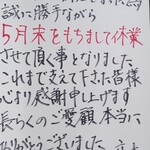 誠に勝手ながら
5月末をもちまして休業
させて頂く事となりました
これまで支えて下さた皆様
心より感謝申し上げます
長らくのご愛顧本当に
ありがとうございました